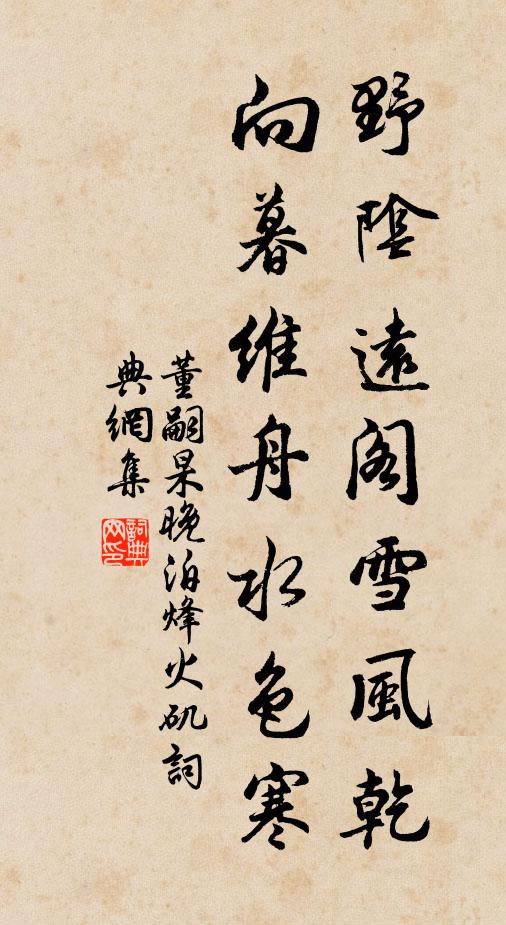 野陰遠閣雪風乾
向暮維舟水色寒
董嗣杲晚泊烽火矶詞
典網集
詞典
网印